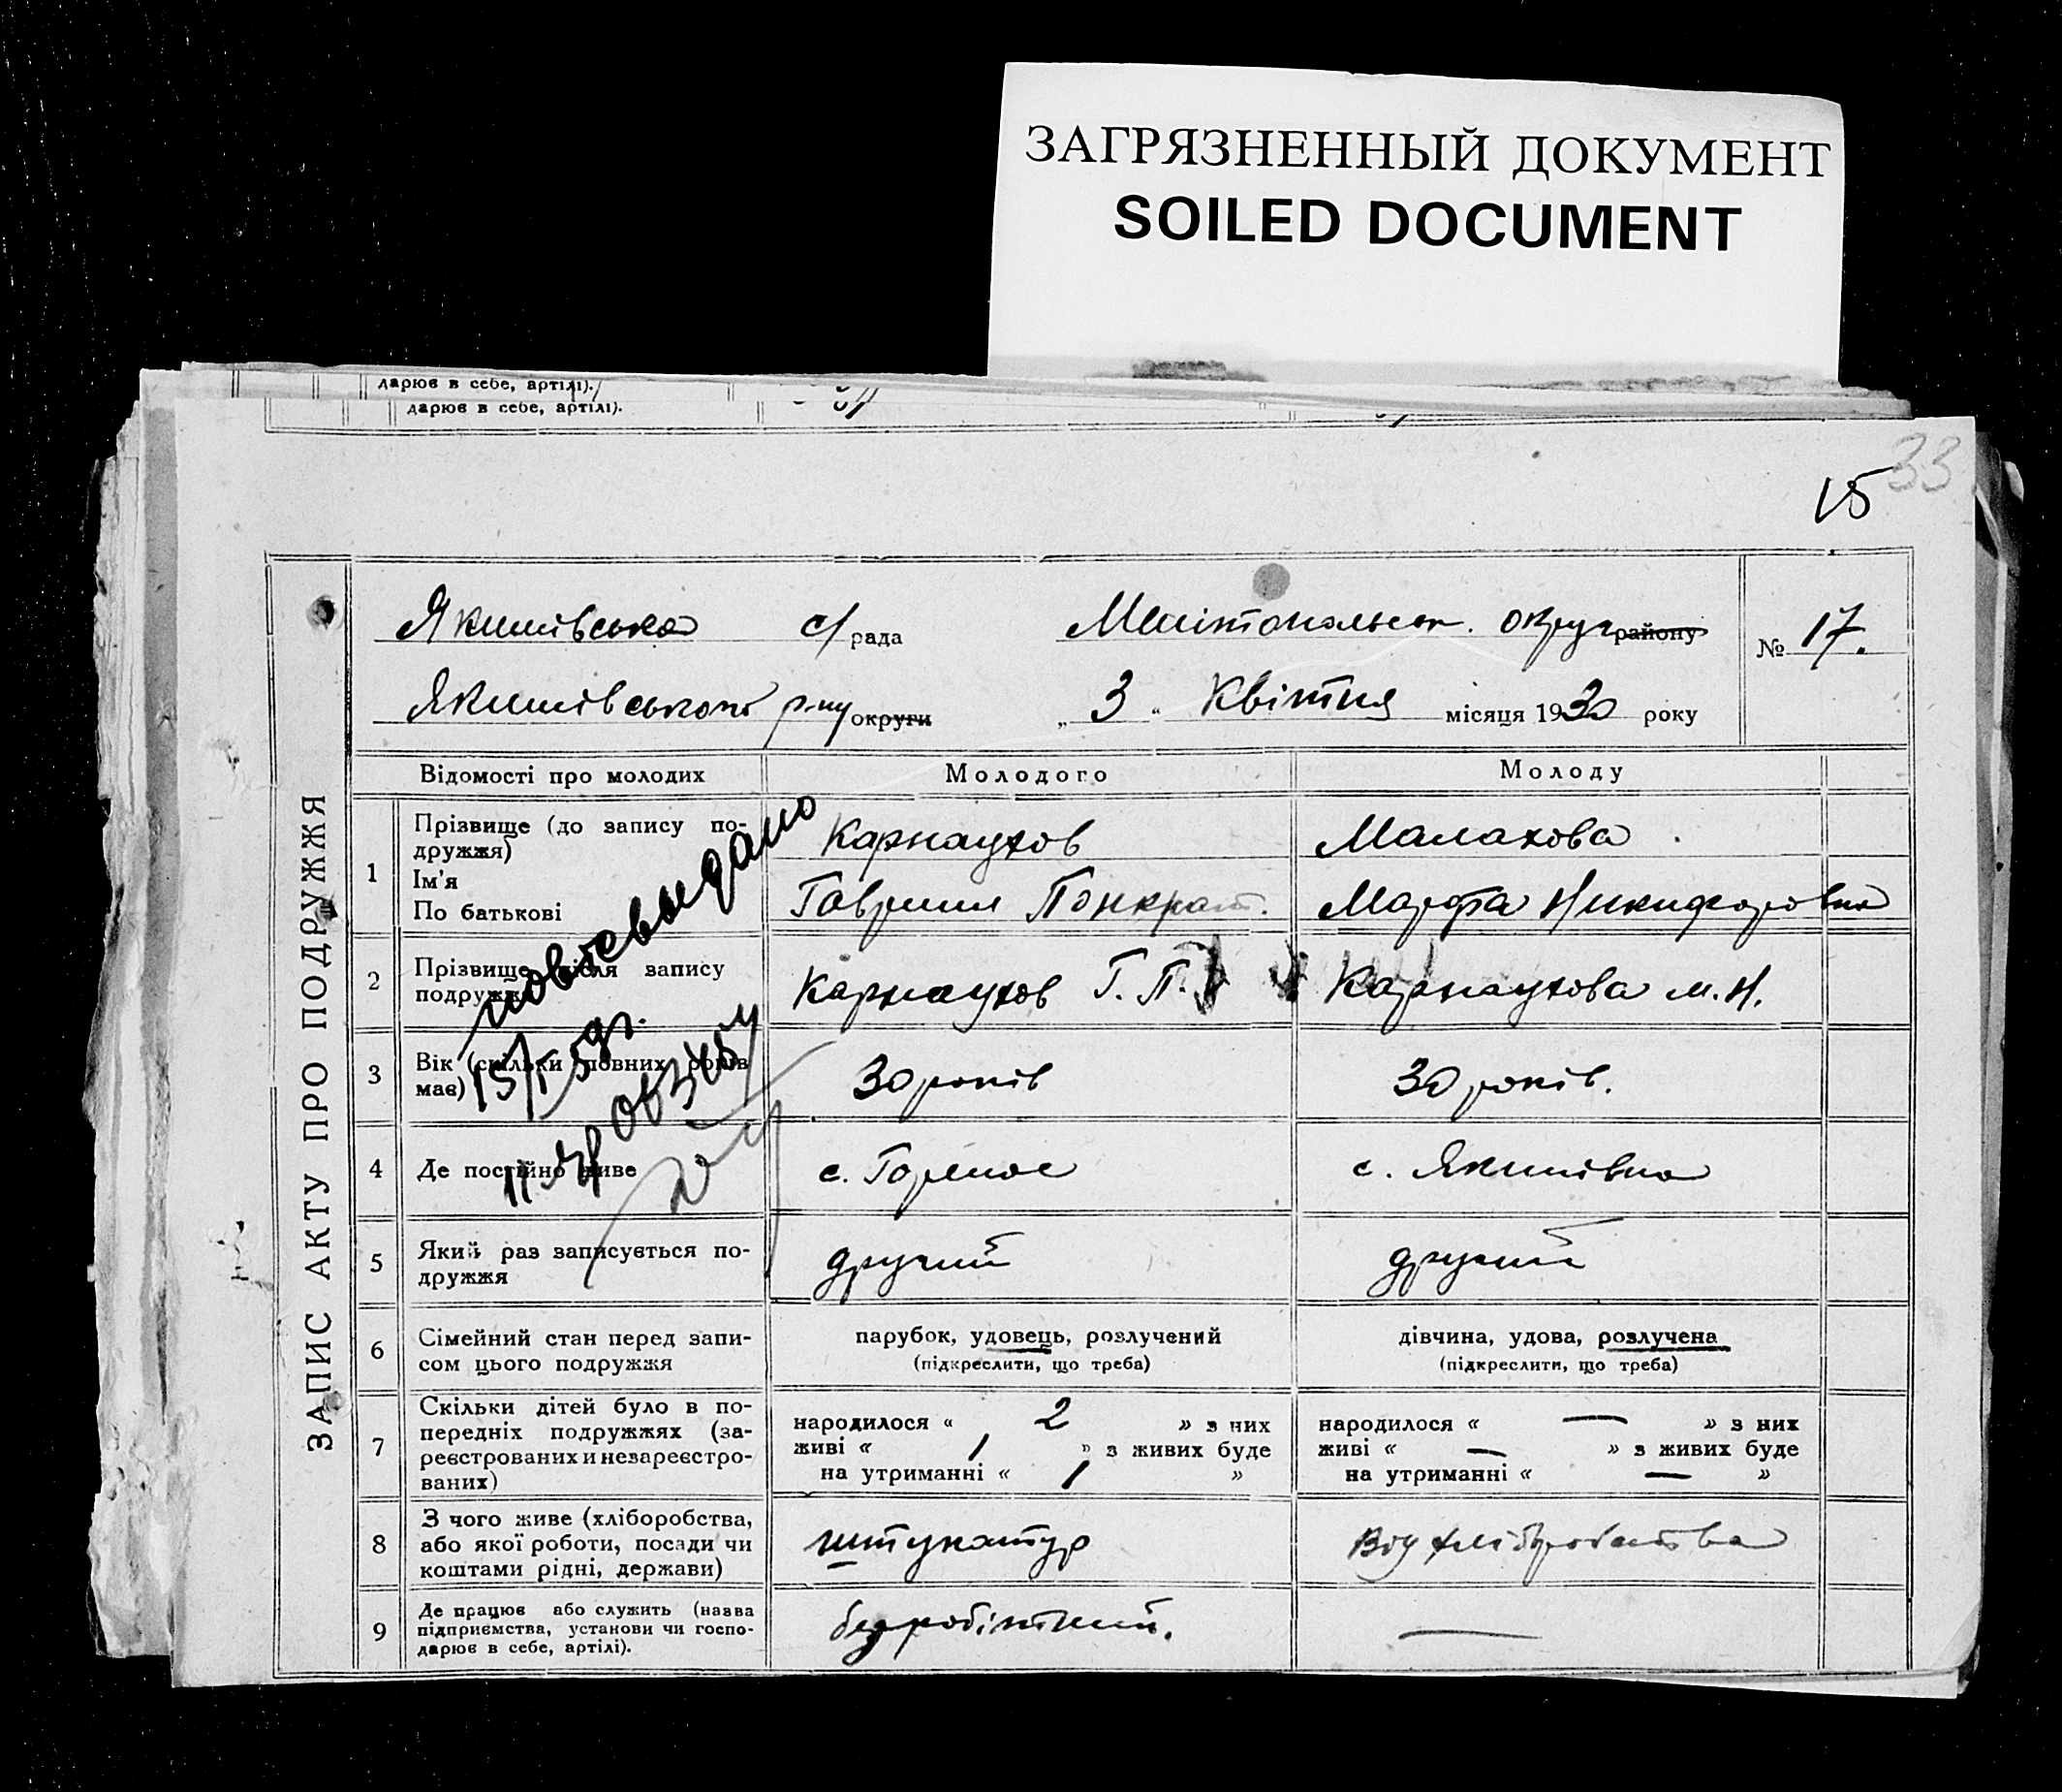 ЗАГРЯЗНЕННЫЙ ДОКУМЕНТ
SOILED DOCUMENT
дарює в себе, артілі).
дарює в себе, артілі).
33
15
ЗАПИС АКТУ ПРО ПОДРУЖЖЯ
Якимівська с/рада Мелітопольськ. округ району № 17.
Якимівського р-ну округи „ 3 " Квітня місяця 1930 року
Відомості про молодих Молодого Молоду
1 Прізвище (до запису подружжя) Карнаухов Малахова
Ім'я
По батькові Гавриил Понкрат. Марфа Никифоровна
2 Прізвище після запису подружжя Карнаухов Г. П. Карнаухова М. Н.
повт. свыдано
15/I 59г.
3 Вік (скільки повних років має) 30 років 30 років.
4 Де постійно живе с. Горелое с. Якимівка
5 Який раз записується подружжя другий другий
6 Сімейний стан перед записом цього подружжя парубок, удовець, розлучений дівчина, удова, розлучена
(підкреслити, що треба) (підкреслити, що треба)
7 Скільки дітей було в попередніх подружжях (зареєстрованих и незареєстрованих)
народилося « 2 » з них народилося « — » з них
живі « 1 » з живих буде живі « — » з живих буде
на утриманні « 1 » на утриманні « — »
8 З чого живе (хліборобства, або якої роботи, посади чи коштами рідні, держави) штукатур Від хліборобства
9 Де працює або служить (назва підприємства, установи чи господарює в себе, артілі). безробітний. —